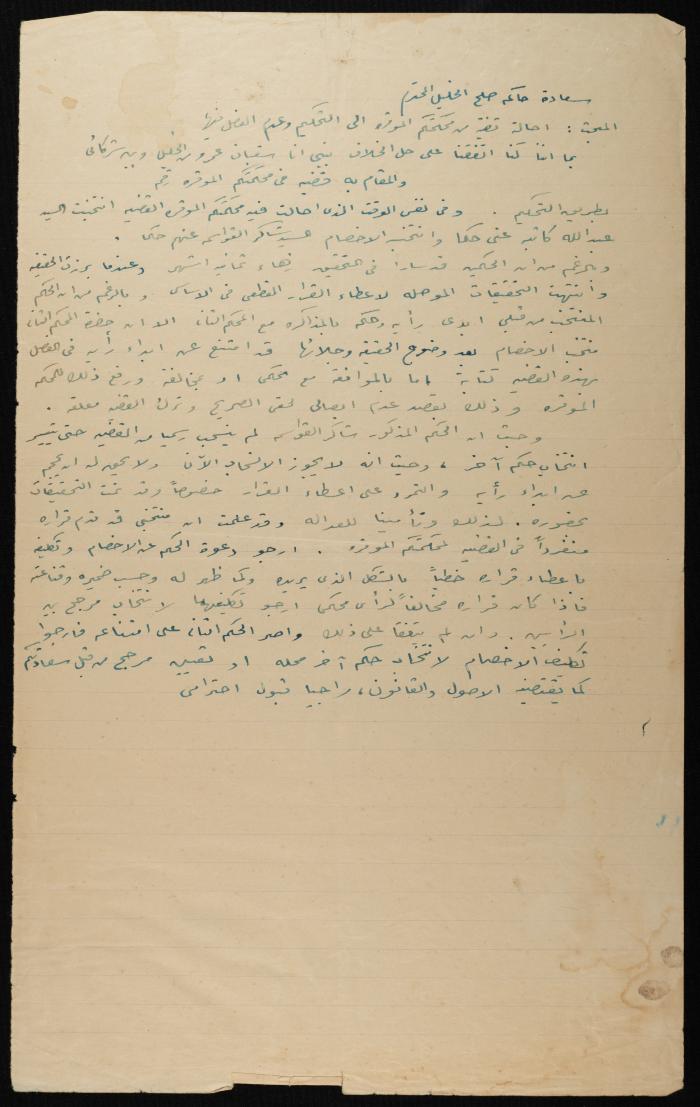 سعادة حاكم صلح الخليل المحترم
المبحث : احالة قضية من محكمتكم الموقره الى التحكيم وعدم الفصل فيها
بما اننا كنا اتفقنا على حل الخلاف بيني انا سفيان عمرو من الخليل وبين شركائي
والمقام به قضيه في محكمتكم الموقره رقم
بطريق التحكيم . وفي نفس الوقت الذي احالت فيه محكمتكم الموقره القضيه انتخبت السيد
عبدالله كاتبه عني حكما وانتخب الاخصام السيد شاكر القواسمه عنهم حكما .
وبالرغم من ان الحكمين قد سارا في التحقيق زهاء ثمانية اشهر وعندما برزت الحقيقه
وانتهت التحقيقات الموصله لاعطاء القرار القطعي في الاساس وبالرغم من ان الحكم
المنتخب من قبلي ابدى رأيه وحكمه بالمذاكره مع الحكم الثاني الا ان حضرة الحكم الثاني
منتخب الاخصام بعد وضوح الحقيقة وجلائها قد امتنع عن ابداء رأيه في الفصل
بهذه القضيه كتابة اما بالموافقة مع محكمي او بمخالفة ورفع ذلك للمحكمه
الموقره وذلك بقصد عدم ايصالي لحقي الصريح وترك القضيه معلقه .
وحيث ان الحكم المذكور شاكر القواسمه لم ينسحب رسميا من القضيه حتى يتيسر
انتخاب حكم آخر ، وحيث انه لا يجوز الانسحاب الآن ولا يحق له ان يحجم
عن ابداء رأيه والتمرد على اعطاء القرار خصوصاً وقد تمت التحقيقات
بحضوره . لذلك وتأمينا للعداله وقد علمت ان منتخبي قد قدم قراره
منفرداً في القضيه لمحكمتكم الموقره . ارجو دعوة الحكم عن الاخصام وتكليفه
باعطاء قراره خطياً بالشكل الذي يريده وكما ظهر له وحسب ضميره وقناعته
فاذا كان قراره مخالفاً لرأي محكمي ارجو تكليفهما لانتخاب مرجح بين
الرأيين . وان لم يتفقا على ذلك واصر الحكم الثاني على امتناعه فارجو
تكليف الاخصام لانتخاب حكم آخر محله او تعيين مرجح من قبل سعادتكم
كما يقتضيه الاصول والقانون ، راجيا قبول احترامي